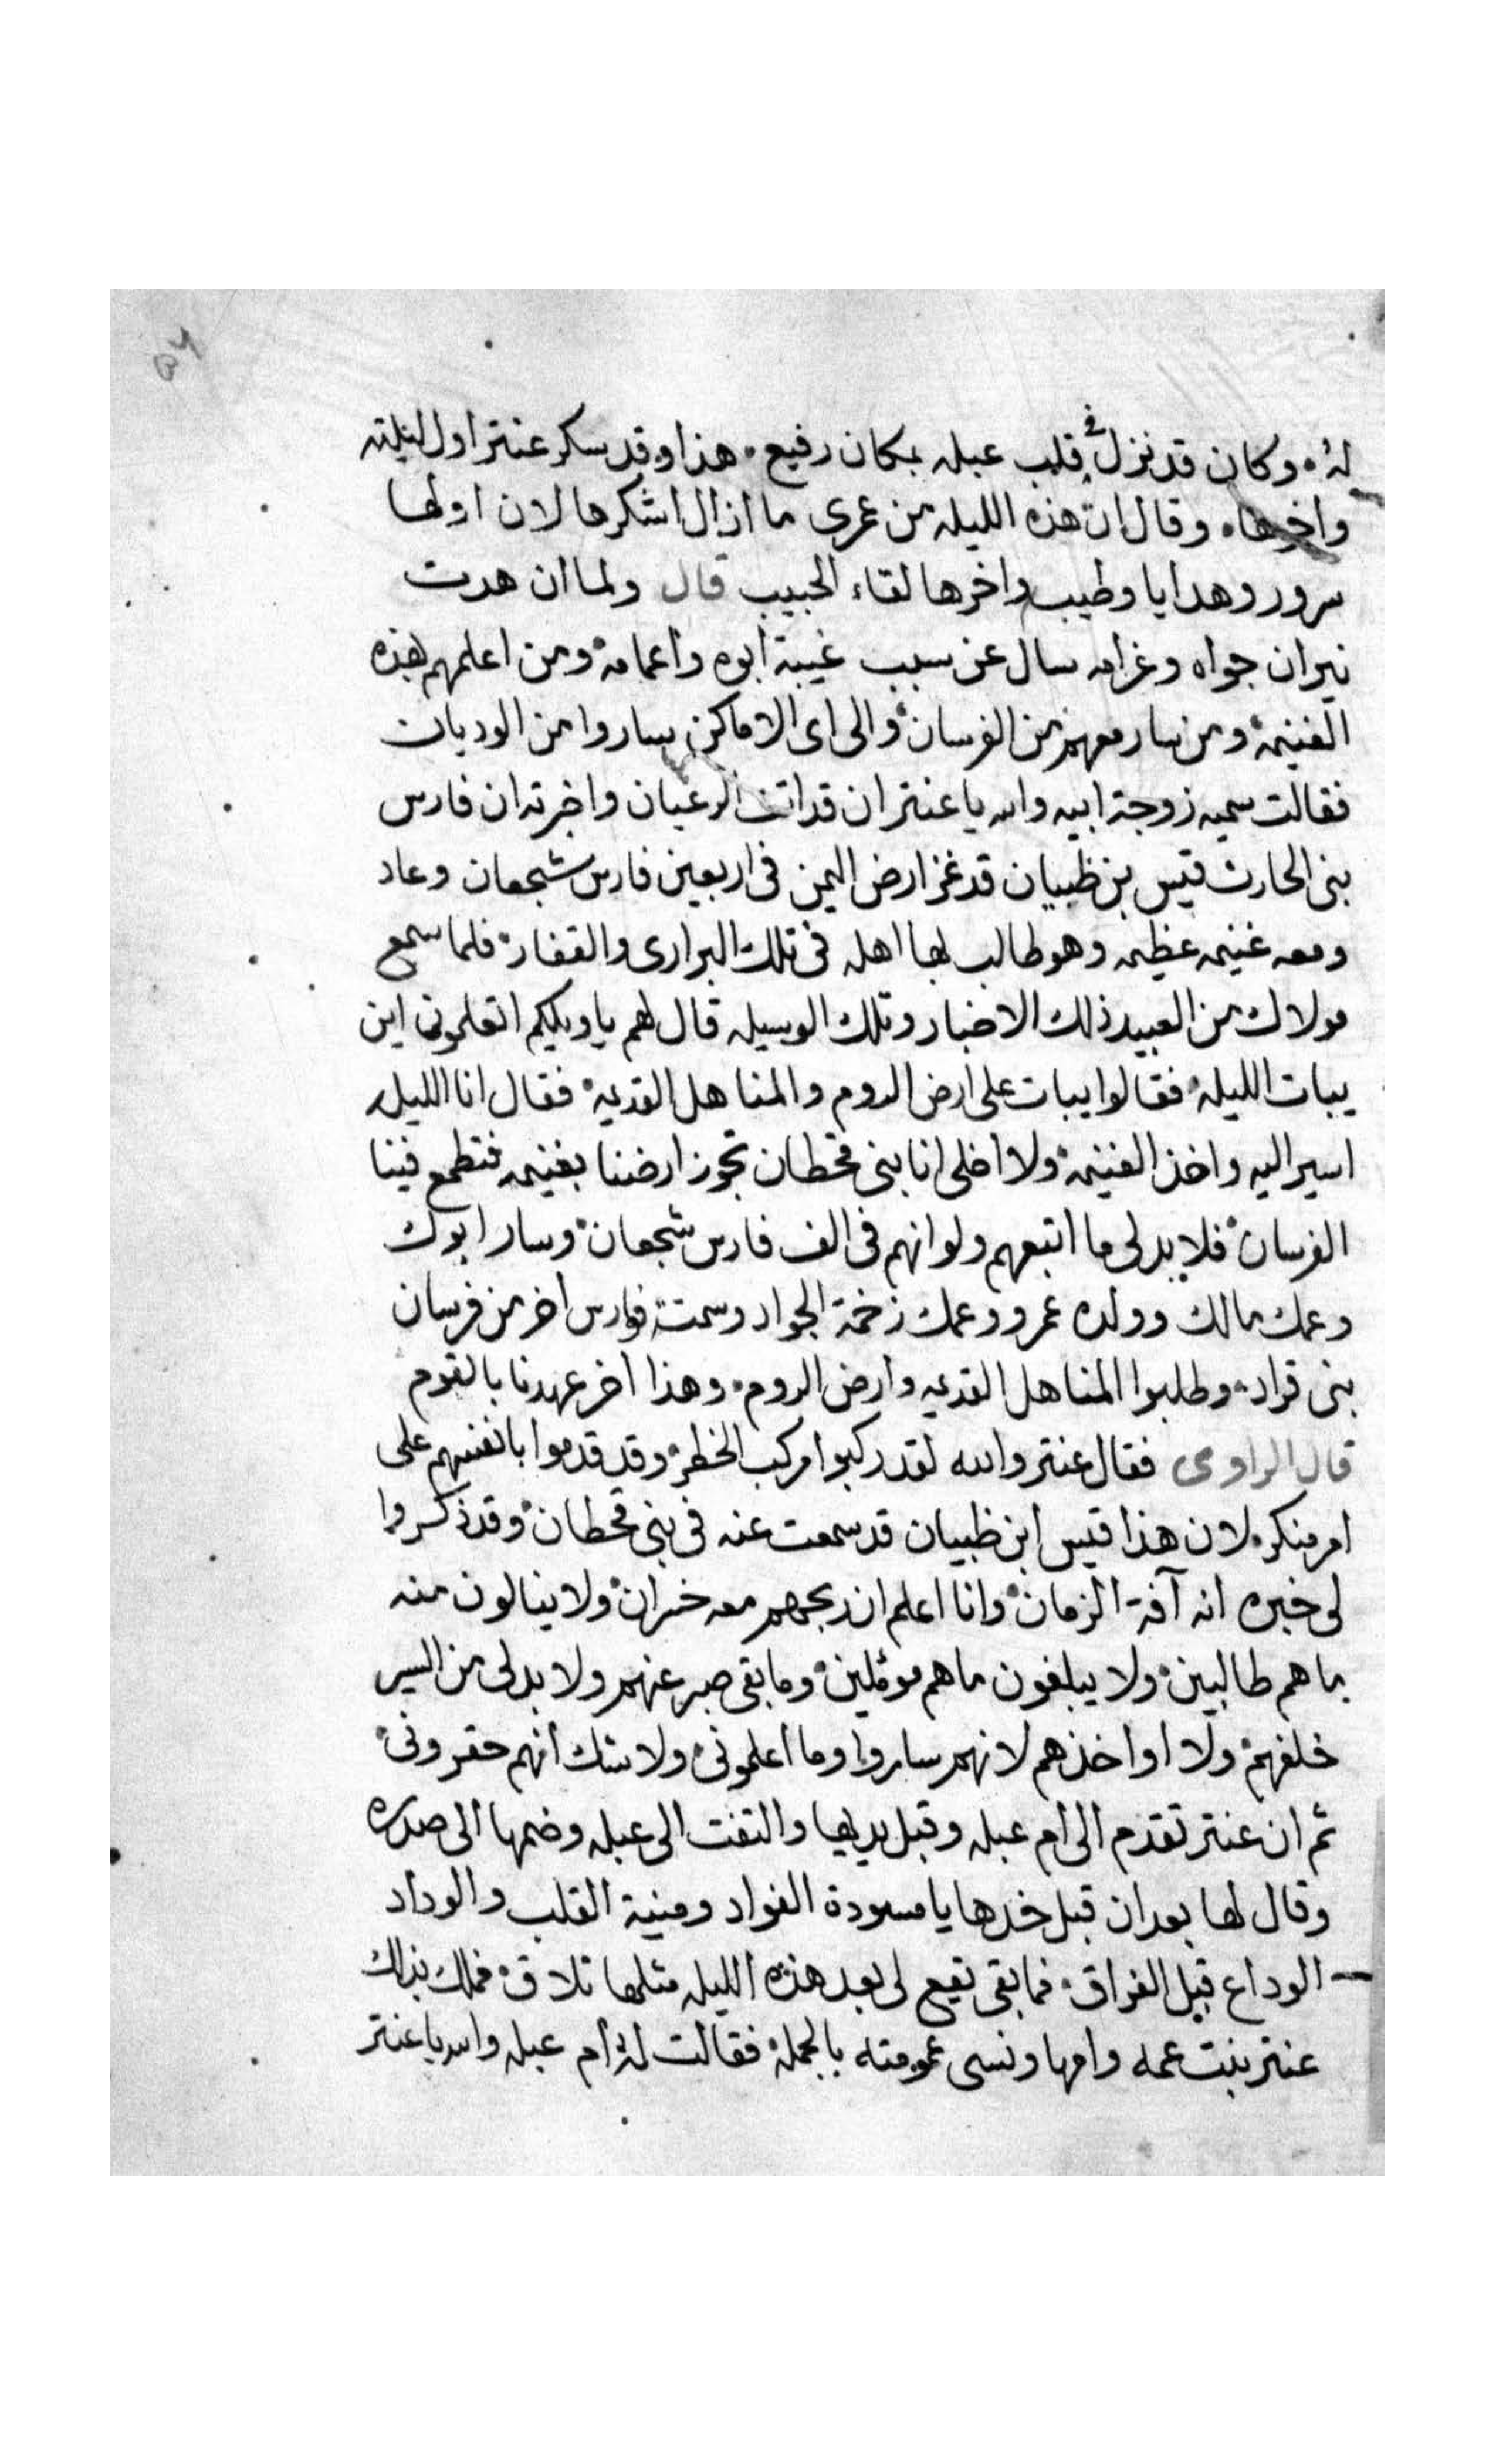 له وكان قد نزل في قلب عبله بمكان رفيع هذا وقد سكر عنتر اول ليلته
واخرها وقال ان هذه الليله من عمرى ما ازال اشكرها لان اولها
سرور وهدايا وطيب واخرها لقاء الحبيب قال ولما ان هدت
نيران جواه وغرامه سال عن سبب غيبة ابوه واعمامه ومن اعلمهم بهذه
الغنيمة ومن سار معهم من الفرسان والى اى الاماكن ساروا من الوديان
فقالت سميه زوجة ابيه والله يا عنتر ان قد اتت الرعيان واخبرته ان فارس
بنى الحارث قيس بن ظبيان قد غزا ارض اليمن فى اربعين فارس شجعان وعاد
ومعه غنيمه عظيمه وهو طالب بها اهله فى تلك البرارى والقفار فلما سمع
مولاك من العبيد ذلك الاخبار وتلك الوسيله قال لهم يا ويلكم اتعلمونى اين
يبات الليله فقالوا يبات على ارض الدوم والمناهل القديمه فقال انا الليله
اسير اليه واخذ الغنيمة ولا اخلى انا بنى قحطان تجوز ارضنا بغنيمه فتطمع فينا
الفرسان فلا بد لى ما اتبعهم ولو انهم فى الف فارس شجعان وسار ابوك
وعمك مالك وولده عمرو وعمك زخمة الجواد وستة فوارس اخر من فرسان
بنى قراد وطلبوا المناهل القديمه وارض الدوم وهذا اخر عهدنا بالقوم
قال الراوى فقال عنتر والله لقد ركبوا مركب الخطر وقد قدموا بانفسهم على
امر منكر لان هذا قيس ابن ظبيان قد سمعت عنه فى بنى قحطان وقد ذكروا
لى خبره انه آفة الزمان وانا اعلم ان ربحهم معه خسران ولا ينالون منه
ما هم طالبين ولا يبلغون ما هم موئملين وما بقى صبر عنهم ولا بد لى من السير
خلفهم ولا اواخذهم لانهم ساروا وما اعلمونى ولا شك انهم حقرونى
ثم ان عنتر تقدم الى ام عبله وقبل يديها والتفت الى عبله وضمها الى صدره
وقال لها بعد ان قبل خدها يا مسودة الفواد ومنية القلب والوداد
الوداع قبل الفراق فما بقى يقع لى بعد هذه الليله مثلها تلاق فملك بذلك
عنتر بنت عمه وامها ونسى عمومته بالجملة فقالت له ام عبله والله يا عنتر